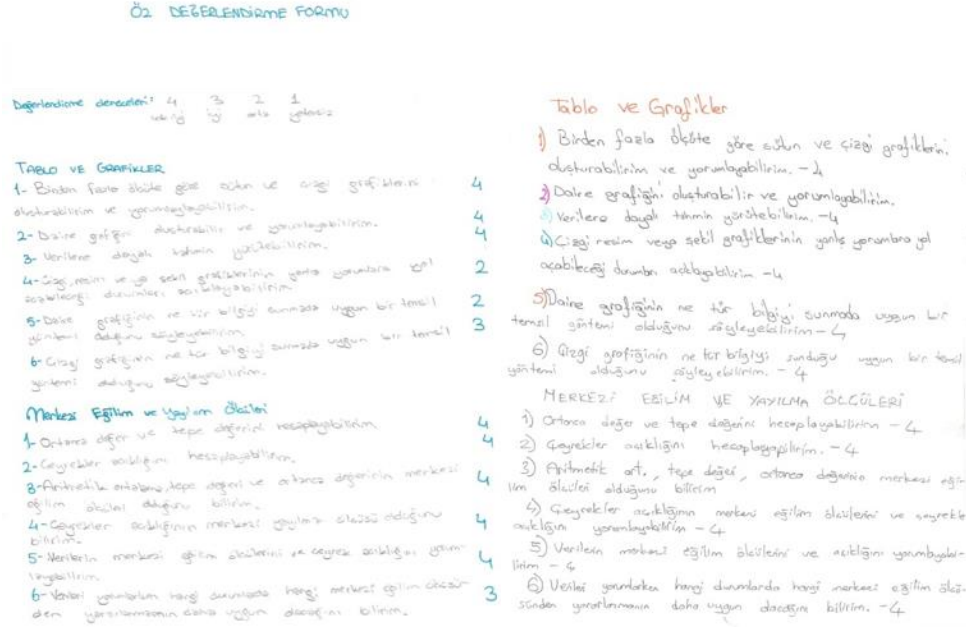 ÖZ DEĞERLENDİRME FORMU
Değerlendirme dereceleri: 4 3 2 1
iyi orta yetersiz
TABLO VE GRAFİKLER
1- Birden fazla ölçüte göre sütun ve çizgi grafiklerini 4
oluşturabilirim ve yorumlayabilirim.
2- Daire grafiğini oluşturabilir ve yorumlayabilirim. 4
3- Verilere dayalı tahmin yürütebilirim. 4
4- Çizgi, resim veya şekil grafiklerinin yanlış yorumlara yol 2
açabileceği durumları açıklayabilirim.
5- Daire grafiğinin ne tür bilgiyi sunmada uygun bir temsil 2
yöntemi olduğunu söyleyebilirim.
6- Çizgi grafiğinin ne tür bilgiyi sunmada uygun bir temsil 3
yöntemi olduğunu söyleyebilirim.
Merkezi Eğilim ve Yayılım Ölçüleri
1- Ortanca değer ve tepe değerini hesaplayabilirim. 4
2- Çeyrekler açıklığını hesaplayabilirim. 4
3- Aritmetik ortalama, tepe değeri ve ortanca değerinin merkezi 4
eğilim ölçüleri olduğunu bilirim.
4- Çeyrekler açıklığının merkezi yayılma ölçüsü olduğunu 4
bilirim.
5- Verilerin merkezi eğilim ölçülerini ve çeyrek açıklığını yorum- 4
layabilirim.
6- Verileri yorumlarken hangi durumlarda hangi merkezi eğilim ölçüsün- 3
den yararlanmanın daha uygun olacağını bilirim.
Tablo ve Grafikler
1) Birden fazla ölçüte göre sütun ve çizgi grafiklerini,
oluşturabilirim ve yorumlayabilirim. - 4
2) Daire grafiğini oluşturabilir ve yorumlayabilirim.
3) Verilere dayalı tahmin yürütebilirim. - 4
4) Çizgi resim veya şekil grafiklerinin yanlış yorumlara yol
açabileceği durumları açıklayabilirim - 4
5) Daire grafiğinin ne tür bilgiyi sunmada uygun bir
temsil yöntemi olduğunu söyleyebilirim - 4
6) Çizgi grafiğinin ne tür bilgiyi sunduğu uygun bir temsil
yöntemi olduğunu söyleyebilirim. - 4
MERKEZİ EĞİLİM VE YAYILMA ÖLÇÜLERİ
1) Ortanca değer ve tepe değerini hesaplayabilirim - 4
2) Çeyrekler açıklığını hesaplayapilirim. - 4
3) Aritmetik ort., tepe değeri, ortanca değerinin merkezi eği-
lim ölçüleri olduğunu bilirim
4) Çeyrekler açıklığının merkezi eğilim ölçülerini ve çeyrekler
açıklığını yorumlayabilirim - 4
5) Verilerin merkezi eğilim ölçülerini ve açıklığını yorumlayabi-
lirim - 4
6) Verileri yorumlarken hangi durumlarda hangi merkezi eğilim ölçü-
sünden yararlanmanın daha uygun olacağını bilirim. - 4